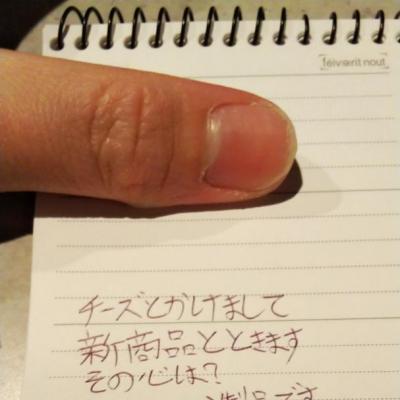 féivərit nout
チーズとかけまして
新商品とときます
その心は？
製品です